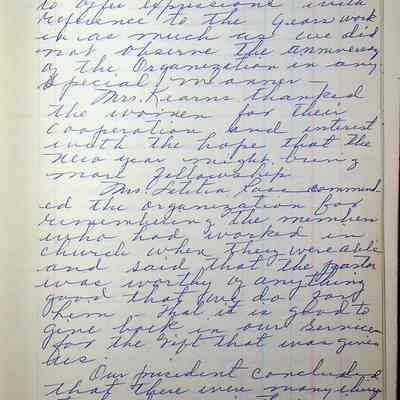 to offer expressions with
reference to the years work
in as much as we did
not observe the anniversary
of the Organization in any
special manner —
Mrs. Kearns thanked
the women for their
cooperation and interest
with the hope that the
New year might bring
more fellowship
Mrs. Letitia commend
ed the organization for
remembering the members
who had worked in
church when they were able
and said that the pastor
was worthy of anything
good that we do for
him — that it is good to
give back in our service
for the gift that was given
us.
Our president concluded
that there were many things